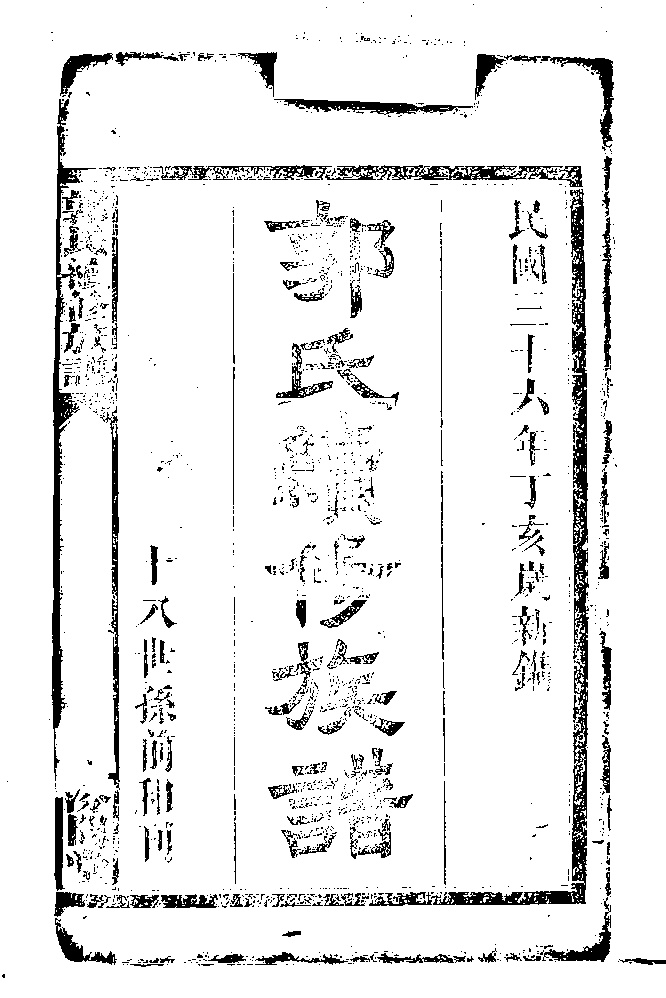 民國三十六年丁亥歲新鐫
郭氏續修族譜
十八世孫前和刊
郭氏續修族譜